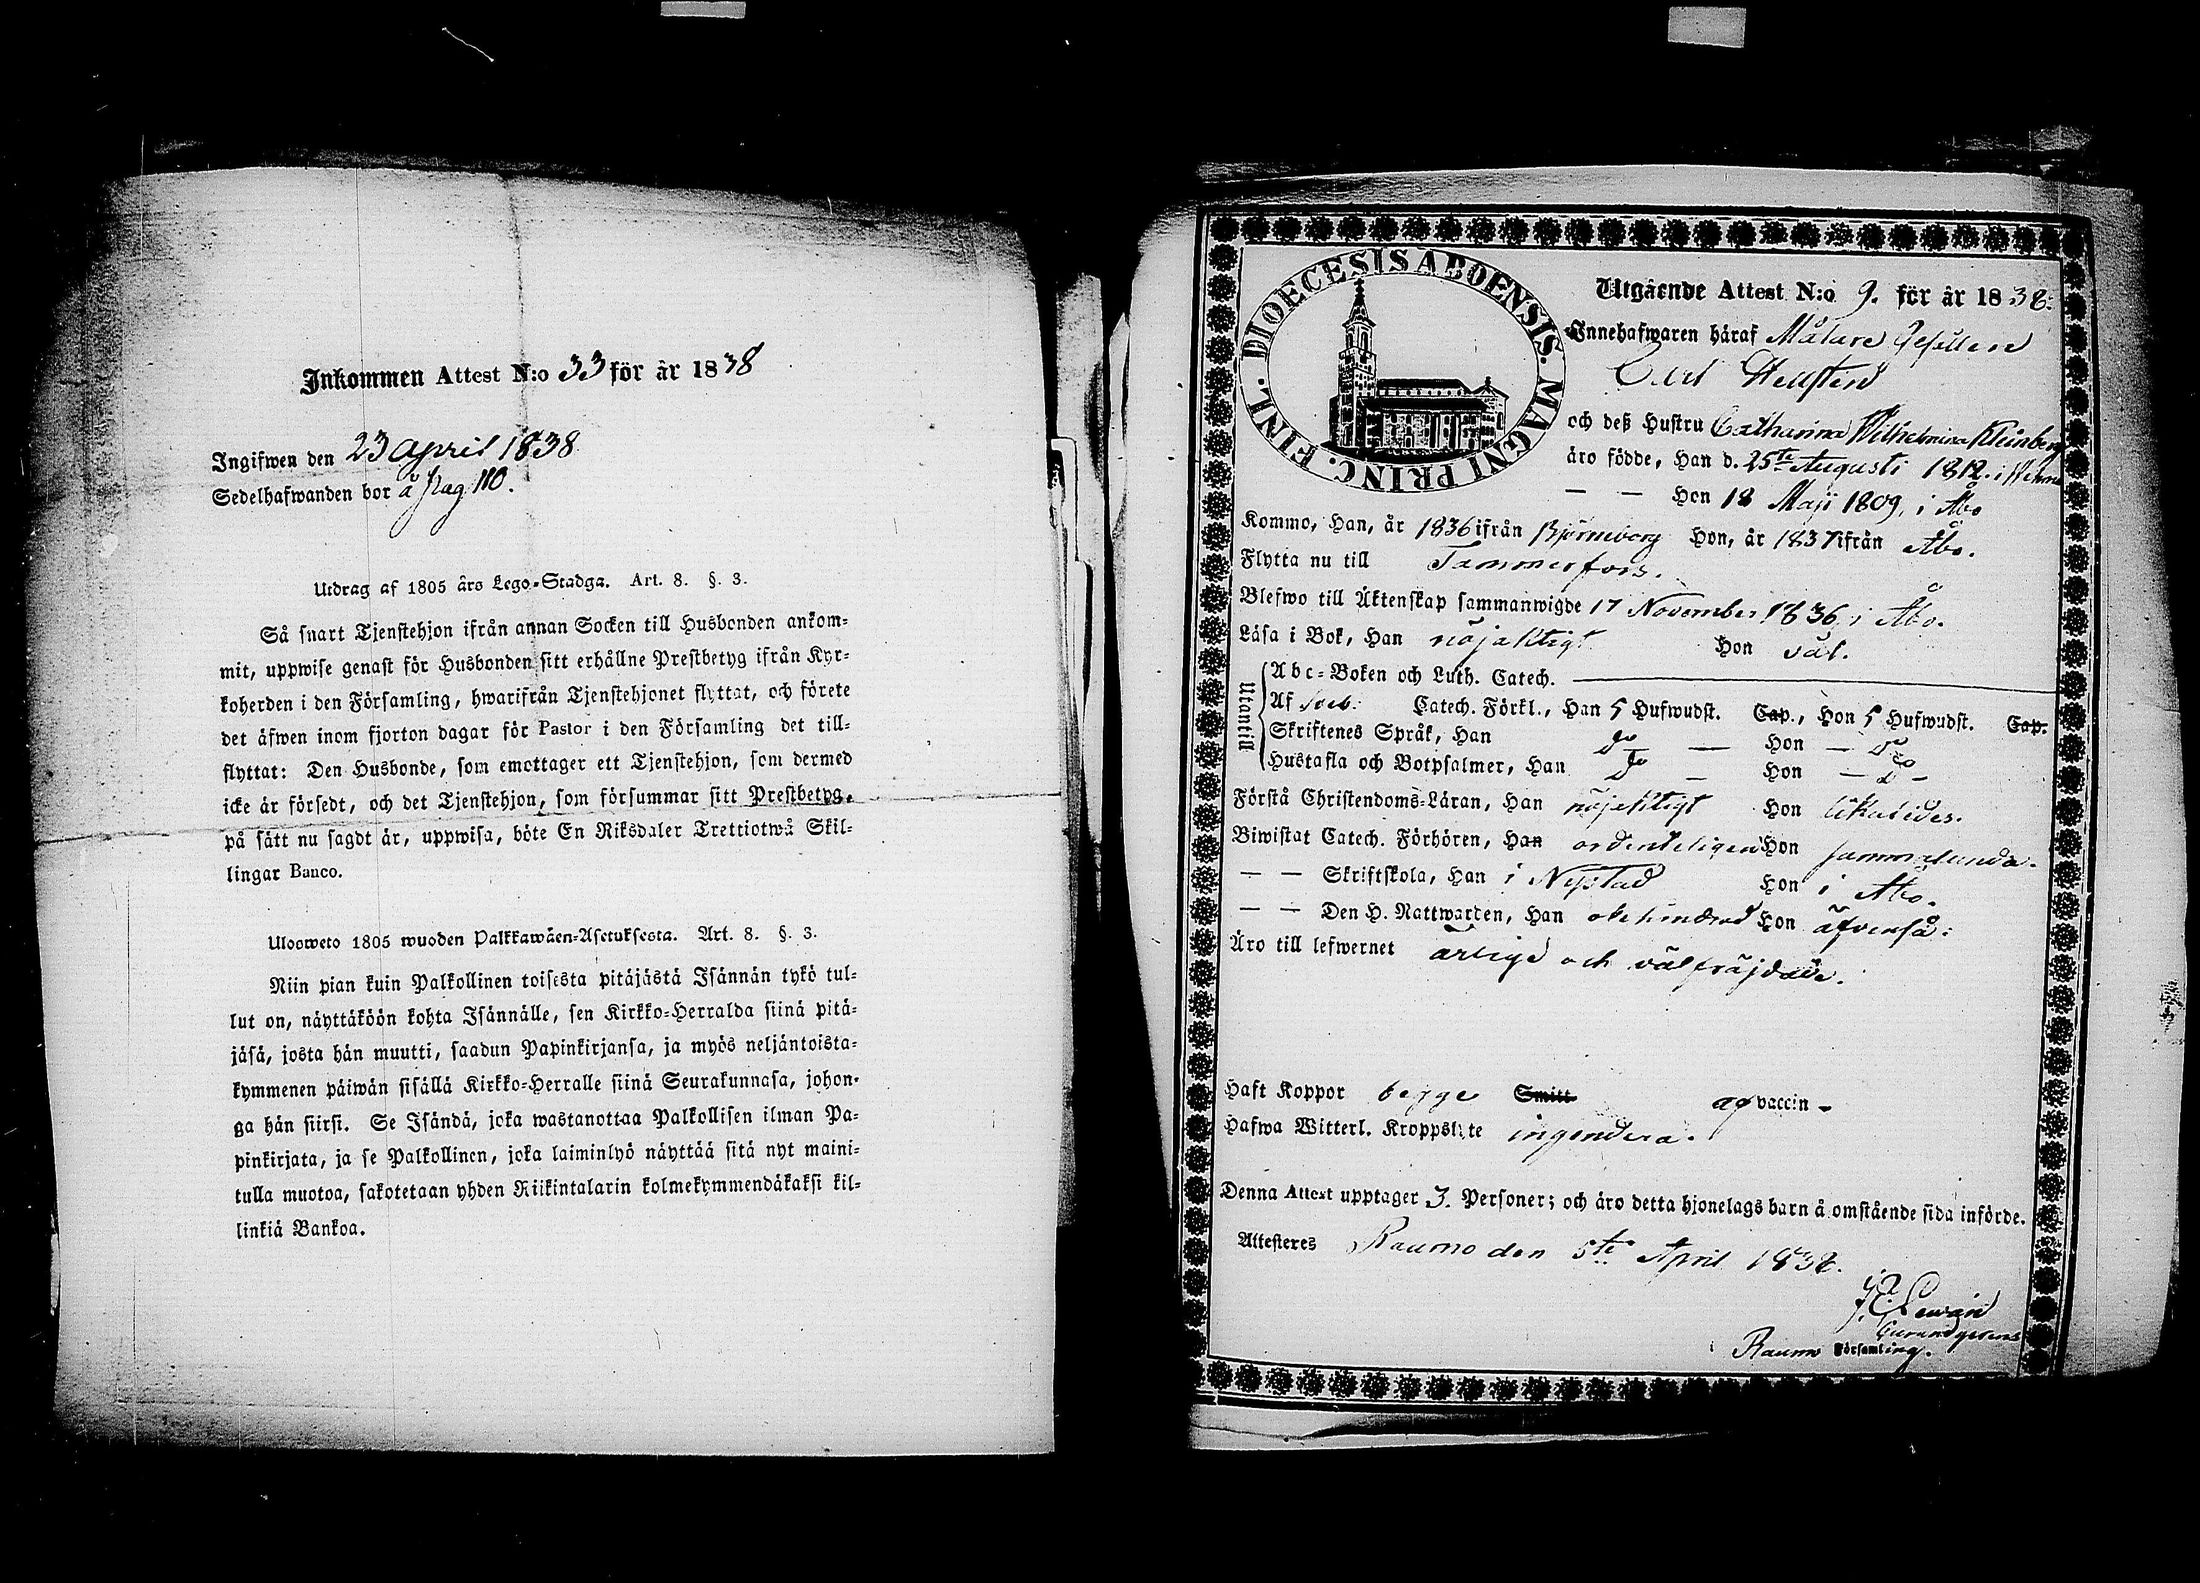 Inkommen Attest N:o 33 för år 1838
Ingifwen den 23 April 1838
Sedelhafwanden bor å pag. 110.
Utdrag af 1805 års Lego-Stadga. Art. 8. §. 3.
Så snart Tjenstehjon ifrån annan Socken till Husbonden ankom-
mit, uppwise genast för Husbonden sitt erhållne Prestbetyg ifrån Kyr-
koherden i den Församling, hwarifrån Tjenstehjonet flyttat, och förete
det äfwen inom fjorton dagar för Pastor i den Församling det till-
flyttat: Den Husbonde, som emottager ett Tjenstehjon, som dermed
icke är försedt, och det Tjenstehjon, som försummar sitt Prestbetyg,
på sätt nu sagdt är, uppwisa, böte En Riksdaler Trettiotwå Skil-
lingar Banco.
Uloosweto 1805 wuoden Palkkawäen-Asetuksesta. Art. 8. §. 3.
Niin pian kuin Palkollinen toisesta pitäjästä Isännän tykö tul-
lut on, näyttäköön kohta Isännälle, sen Kirkko-Herralda siinä pitä-
jäsä, josta hän muutti, saadun Papinkirjansa, ja myös neljäntoista-
kymmenen päiwän sisällä Kirkko-Herralle siinä Seurakunnasa, johon-
ga hän siirsi. Se Isändä, joka wastanottaa Palkollisen ilman Pa-
pinkirjata, ja se Palkollinen, joka laiminlyö näyttää sitä nyt maini-
tulla muotoa, sakotetaan yhden Riikintalarin kolmekymmendäkaksi kil-
linkiä Bankoa.
DIOECESIS ABOENSIS. MAGNI PRINC. FINL.
Utgående Attest N:o 9. för år 1838.
Innehafwaren häraf Målare Gesällen
Carl Hellsten
och deß Hustru Catharina Wilhelmina Kleinberg
äro födde, Han d. 25te Augusti 1812. i
— — Hon 18 Maji 1809, i Åbo
Kommo, Han, år 1836 ifrån Björneborg Hon, år 1837 ifrån Åbo.
Flytta nu till Tammerfors.
Blefwo till Äktenskap sammanwigde 17 November 1836 i Åbo.
Läsa i Bok, Han nöjaktigt Hon väl.
Utantill
Abc-Boken och Luth. Catech. —
Af Sveb. Catech. Förkl., Han 5 Hufwudst. Cap., Hon 5 Hufwudst. Cap.
Skriftenes Språk, Han Do — Hon — Do
Hustafla och Botpsalmer, Han Do — Hon — Do —
Förstå Christendoms-Läran, Han nöjaktigt Hon likaledes.
Biwistat Catech. Förhören, Han ordenteligen Hon sammalunda.
— — Skriftskola, Han i Nystad Hon i Åbo.
— — Den H. Nattwarden, Han obehindrad Hon äfvenså.
Äro till lefwernet ärlige och välfräjdade.
Haft Koppor begge Smitt af vaccin —
Hafwa Witterl. Kroppslyte ingendera.
Denna Attest upptager 3. Personer; och äro detta hjonelags barn å omstående sida införde.
Attesteres Raumo den 5te April 1838.
Raumo Församling.